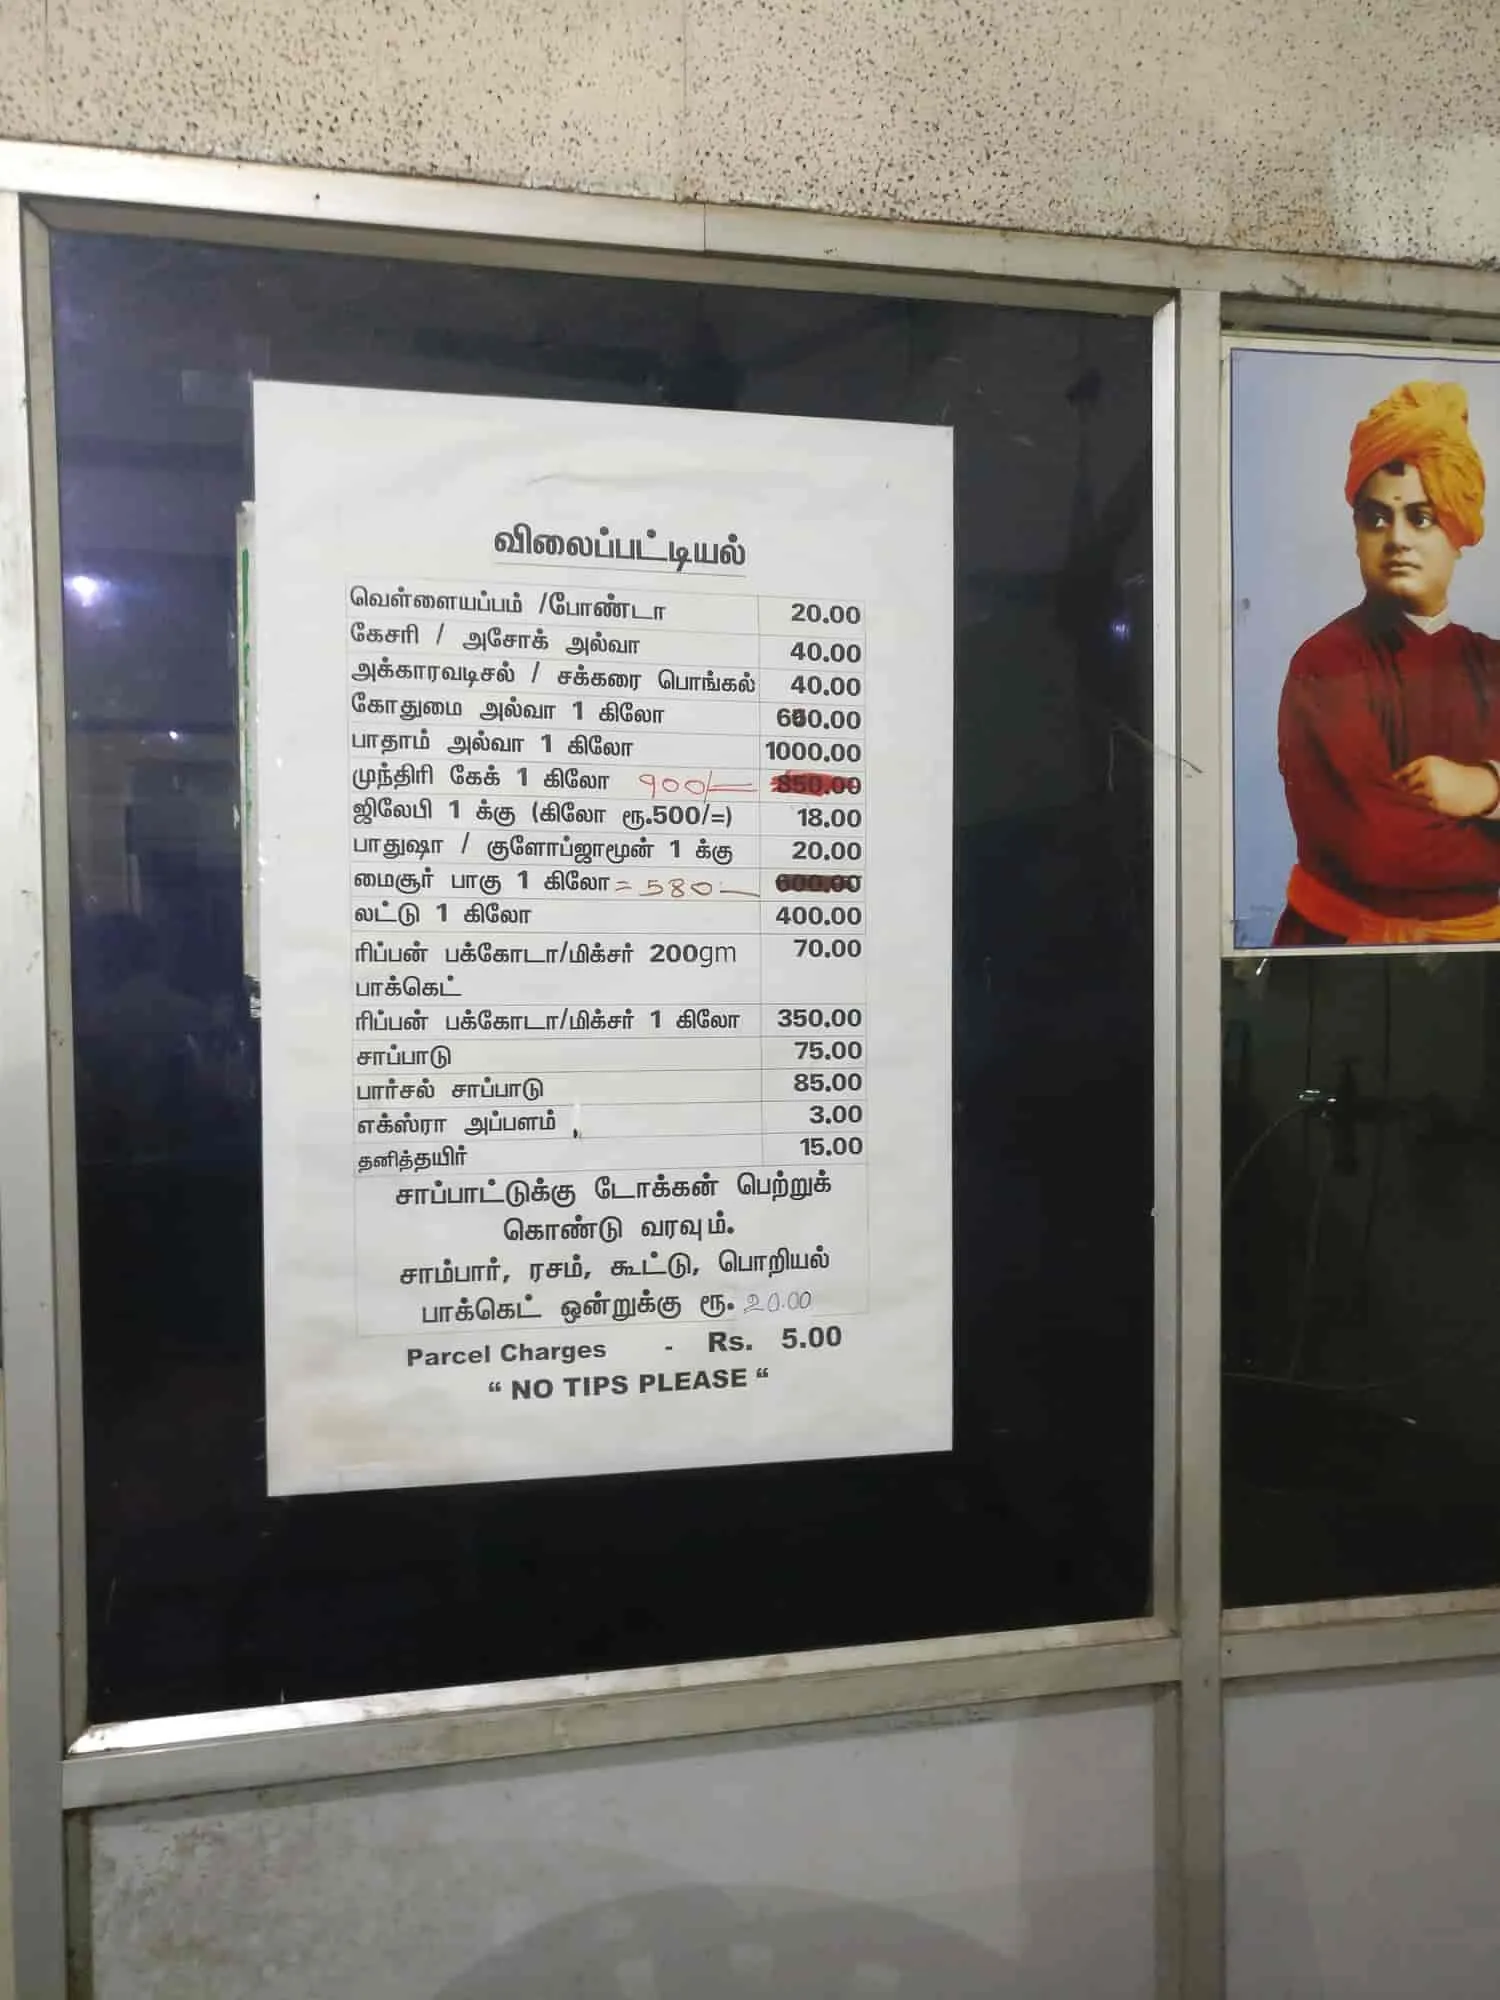 விலைப்பட்டியல்
வெள்ளையப்பம் /போண்டா 20.00
கேசரி / அசோக் அல்வா 40.00
அக்காரவடிசல் / சக்கரை பொங்கல் 40.00
கோதுமை அல்வா 1 கிலோ
பாதாம் அல்வா 1 கிலோ 1000.00
முந்திரி கேக் 1 கிலோ 900/— 850.00
ஜிலேபி 1 க்கு (கிலோ ரூ.500/=) 18.00
பாதுஷா / குளோப்ஜாமூன் 1 க்கு 20.00
மைசூர் பாகு 1 கிலோ = 580— 600.00
லட்டு 1 கிலோ 400.00
ரிப்பன் பக்கோடா/மிக்சர் 200gm 70.00
பாக்கெட்
ரிப்பன் பக்கோடா/மிக்சர் 1 கிலோ 350.00
சாப்பாடு 75.00
பார்சல் சாப்பாடு 85.00
எக்ஸ்ரா அப்பளம் 3.00
தனித்தயிர் 15.00
சாப்பாட்டுக்கு டோக்கன் பெற்றுக்
கொண்டு வரவும்.
சாம்பார், ரசம், கூட்டு, பொறியல்
பாக்கெட் ஒன்றுக்கு ரூ. 20.00
Parcel Charges - Rs. 5.00
“ NO TIPS PLEASE “